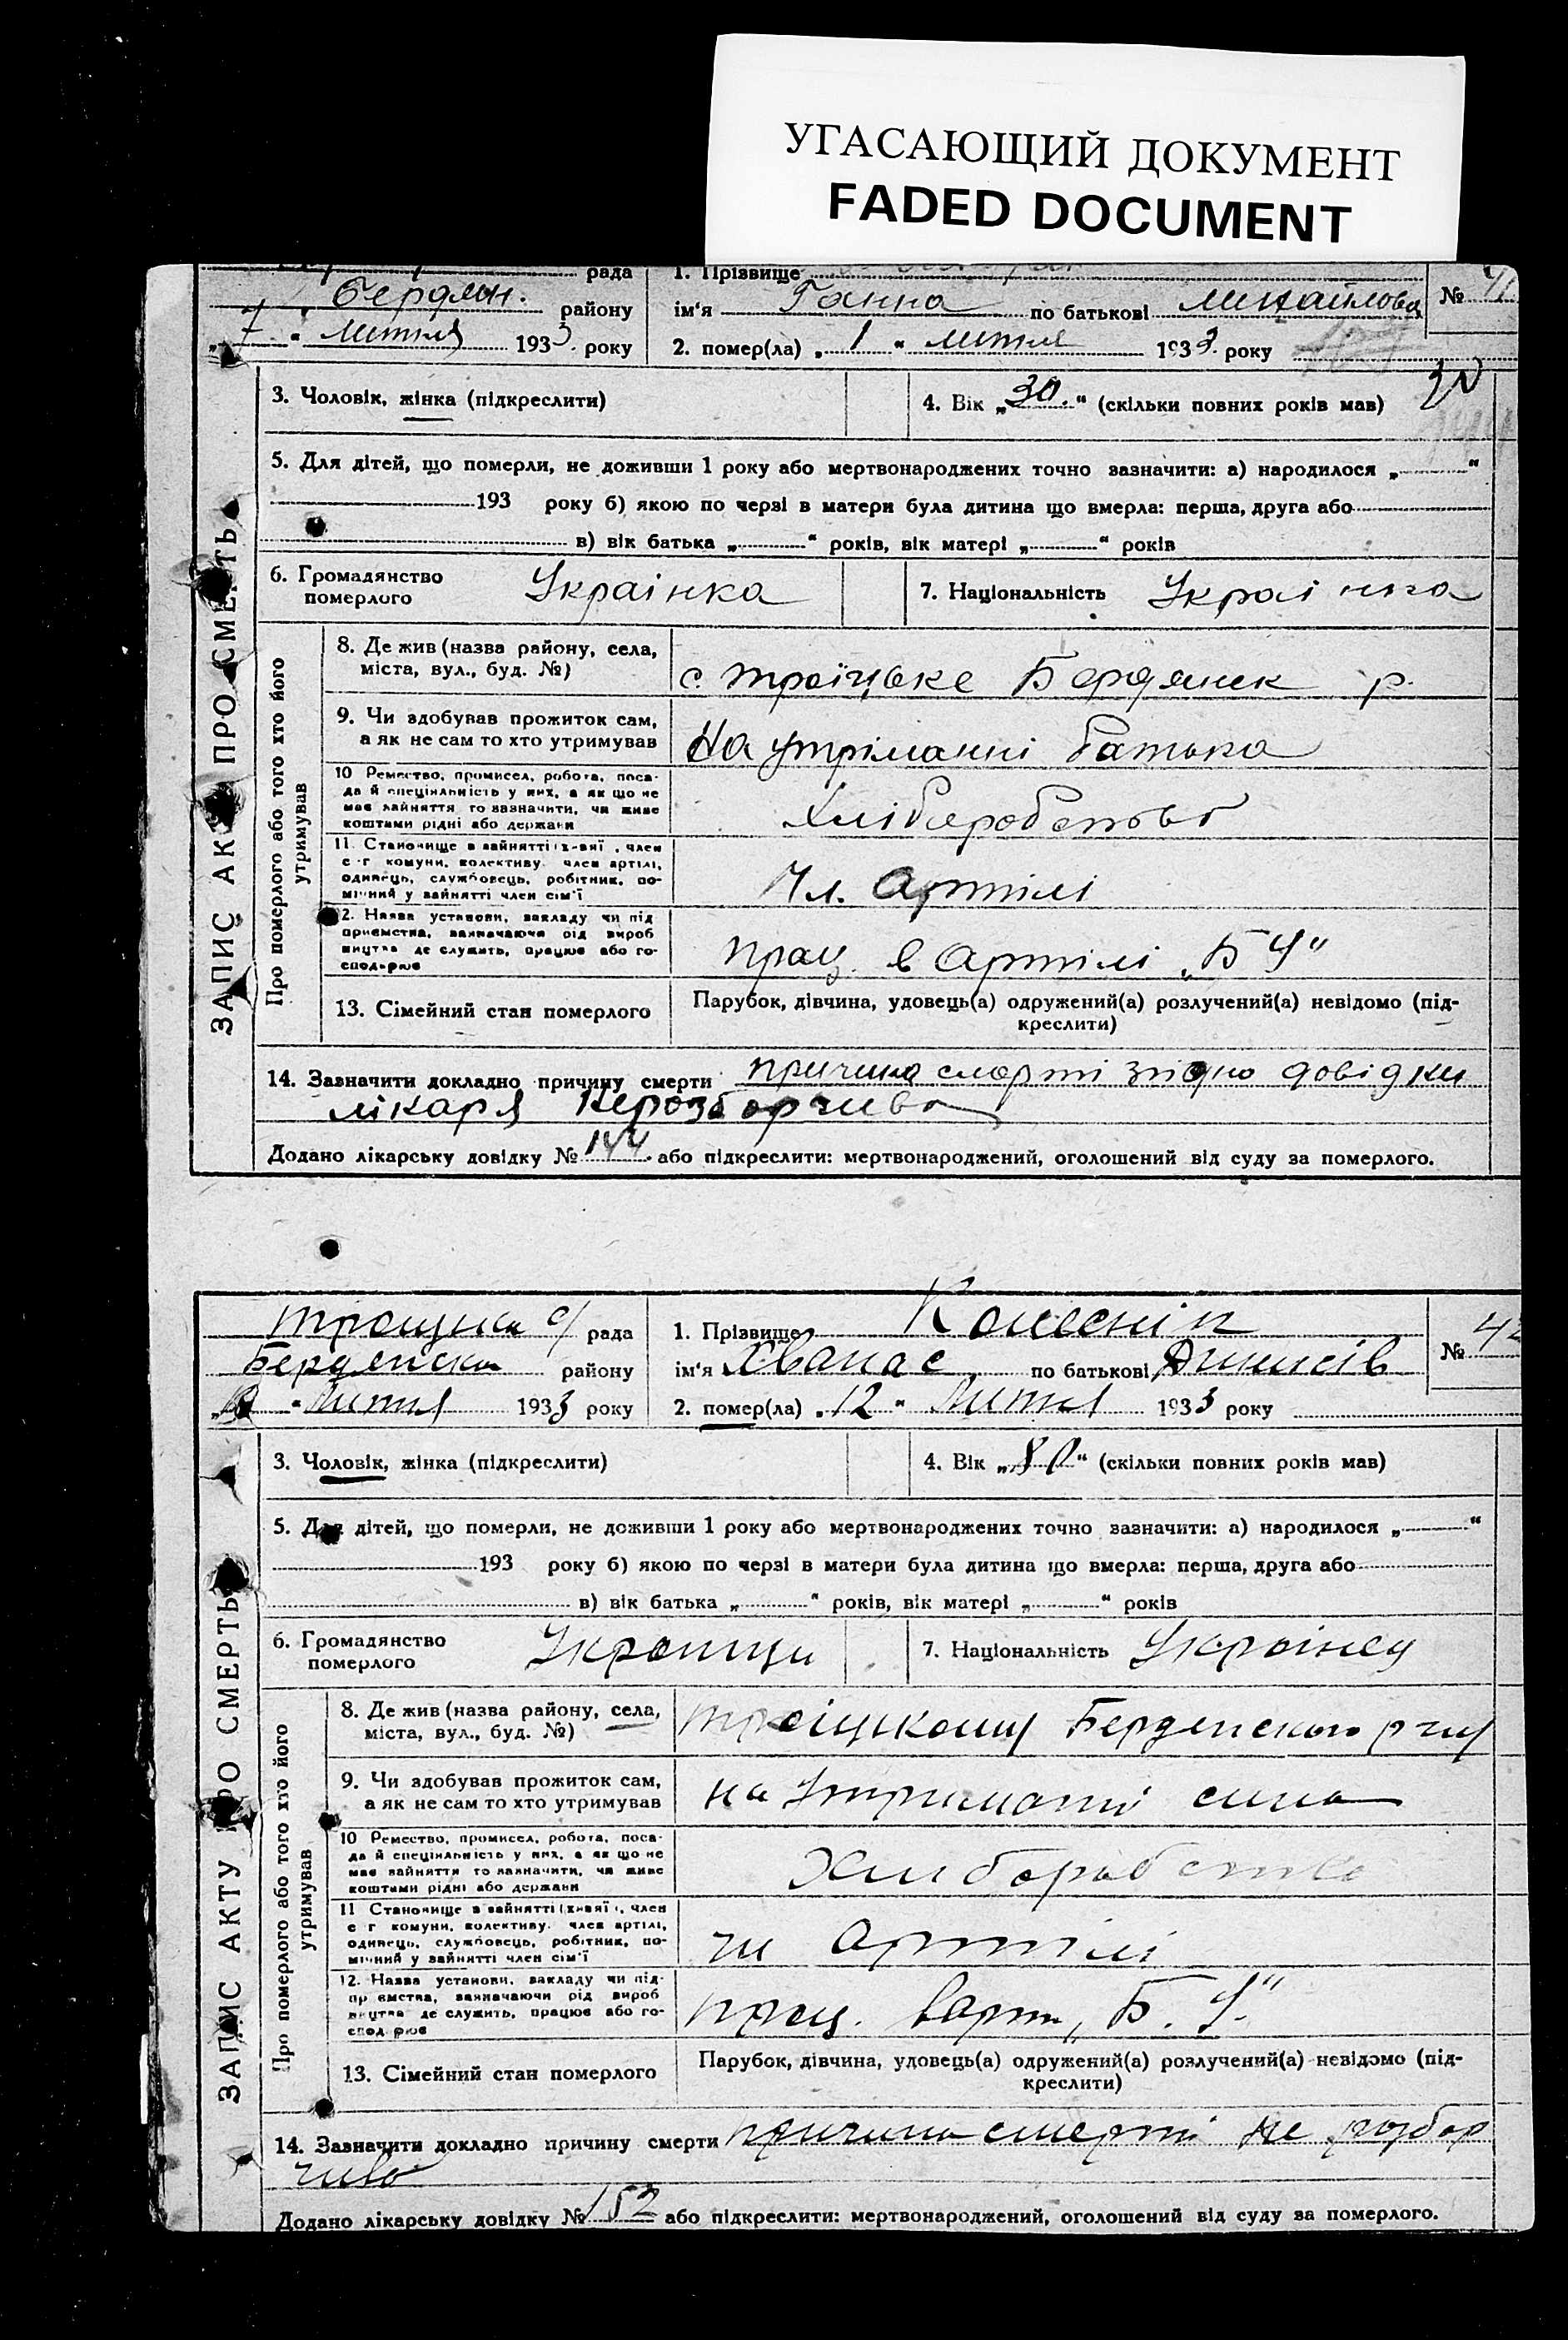 УГАСАЮЩИЙ ДОКУМЕНТ
FADED DOCUMENT
рада
1. Прізвище
Бердян. району
ім'я Ганна по батькові Михайлова
№ 41
„7" лютня 1933 року
2. помер(ла) „1" лютня 1933 року
ЗАПИС АКТУ ПРО СМЕРТЬ
3. Чоловік, жінка (підкреслити)
4. Вік „30." (скільки повних років мав)
5. Для дітей, що померли, не доживши 1 року або мертвонароджених точно зазначити: а) народилося „ "
193 року б) якою по черзі в матери була дитина що вмерла: перша, друга або
в) вік батька „ " років, вік матері „ " років
6. Громадянство
померлого
Українка
7. Національність Українка
Про померлого або того хто його
утримував
8. Де жив (назва району, села,
міста, вул., буд. №)
с. Троїцьке Бердянск р.
9. Чи здобував прожиток сам,
а як не сам то хто утримував
На утріманні батька
10 Ремество, промисел, робота, поса-
да й спеціяльність у них, а як що не
має зайняття то зазначити, чи живе
коштами рідні або держави
11. Становище в зайнятті член
с-г комуни, колективу член артілі,
одинець, службовець, робітник, по-
мічний у зайнятті член сім'ї
Чл. Артілі
12. Назва установи, закладу чи під
приємства, зазначаючи рід вироб
ництва де служить, працює або го-
сподарює
прац. в Артілі „Б У"
13. Сімейний стан померлого
Парубок, дівчина, удовець(а) одружений(а) розлучений(а) невідомо (під-
креслити)
14. Зазначити докладно причину смерти причина смерті згідно довідки
лікаря Нерозборчиво
Додано лікарську довідку № 144 або підкреслити: мертвонароджений, оголошений від суду за померлого.
с/ рада
1. Прізвище Колеснік
району
ім'я Хванас по батькові
№ 42
Лютня 1933 року
2. помер(ла) „12" Лютня 1933 року
ЗАПИС АКТУ ПРО СМЕРТЬ
3. Чоловік, жінка (підкреслити)
4. Вік „80" (скільки повних років мав)
5. Для дітей, що померли, не доживши 1 року або мертвонароджених точно зазначити: а) народилося „ "
193 року б) якою по черзі в матери була дитина що вмерла: перша, друга або
в) вік батька „ " років, вік матері „ " років
6. Громадянство
померлого
7. Національність Українец
Про померлого або того хто його
утримував
8. Де жив (назва району, села,
міста, вул., буд. №)
9. Чи здобував прожиток сам,
а як не сам то хто утримував
на утриманні сина
10 Ремество, промисел, робота, поса-
да й спеціяльність у них, а як що не
має зайняття то зазначити, чи живе
коштами рідні або держави
11 Становище в зайнятті член
с г комуни, колективу член артілі,
одинець, службовець, робітник, по-
мічний у зайнятті член сім'ї
чл Артілі
12. Назва установи, закладу чи під-
приємства, зазначаючи рід вироб
ництва де служить, працює або го-
сподарює
прац. в арт „Б. У."
13. Сімейний стан померлого
Парубок, дівчина, удовець(а) одружений(а) розлучений(а) невідомо (під-
креслити)
14. Зазначити докладно причину смерти причина смерті не розбор
чиво
Додано лікарську довідку № 152 або підкреслити: мертвонароджений, оголошений від суду за померлого.